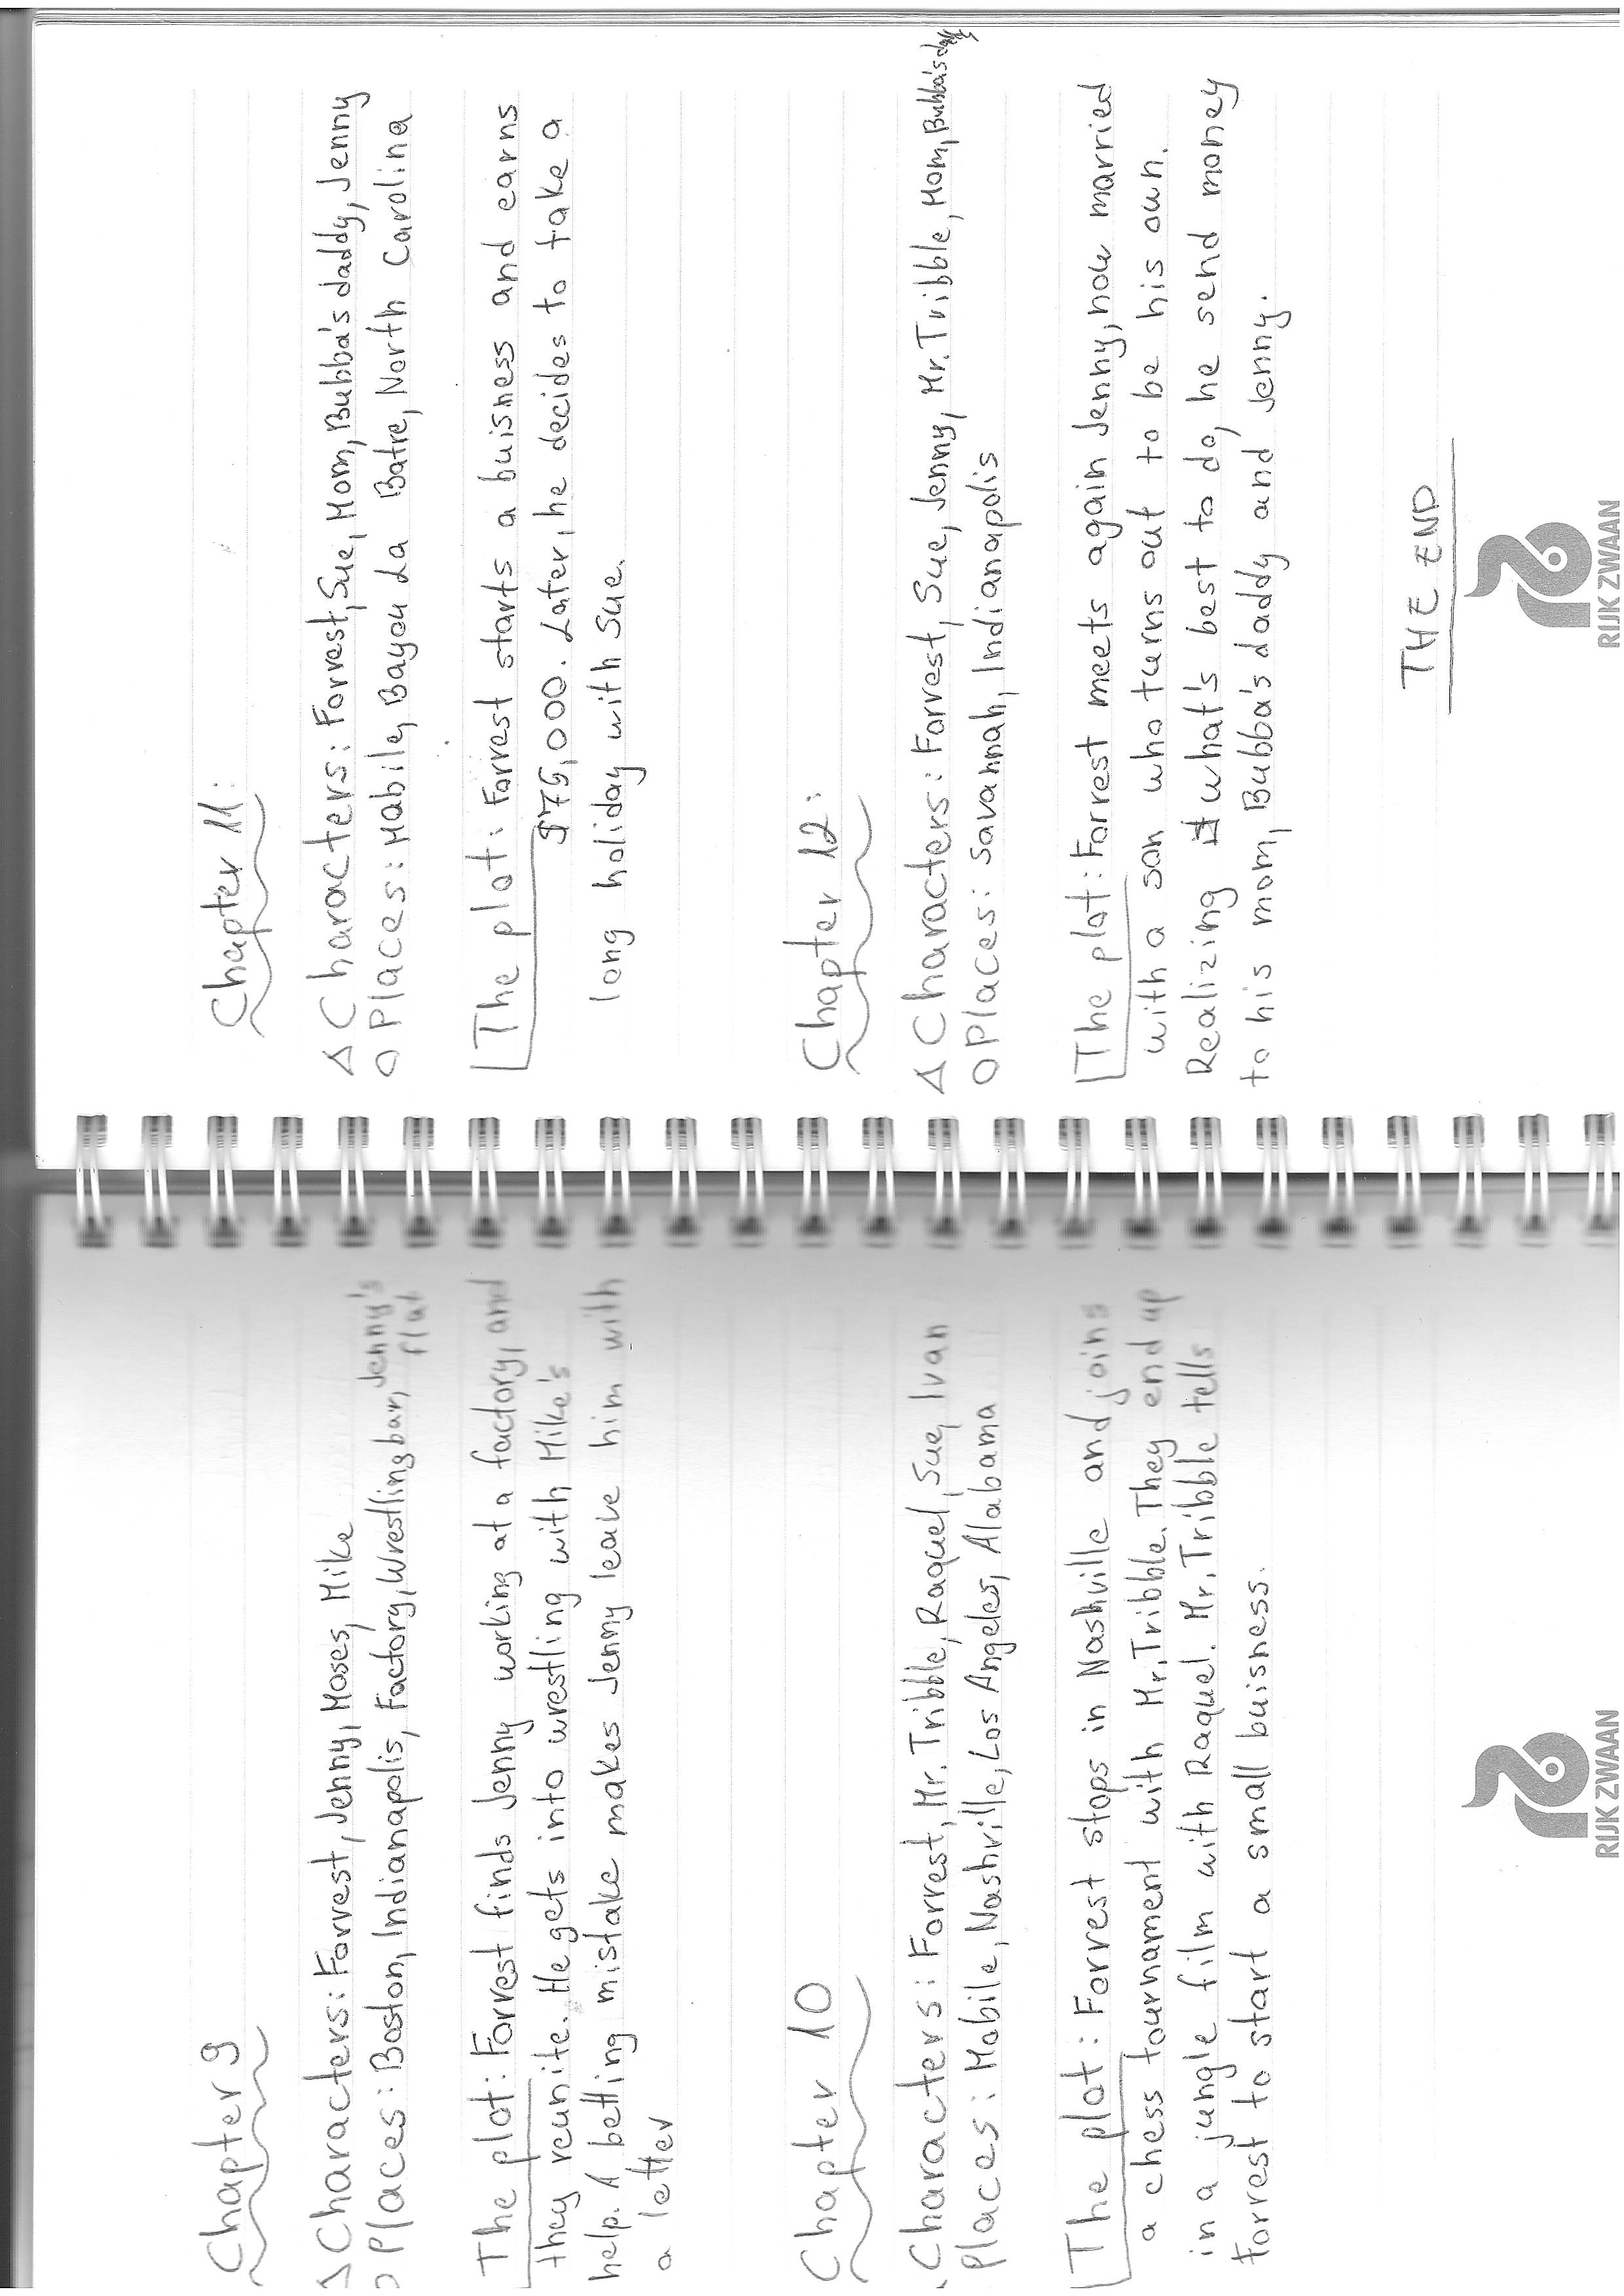 Chapter 9
Characters: Forrest, Jenny, Moses, Mike
Places: Boston, Indianapolis, Factory, Wrestling bar, Jenny's
flat
The plot: Forrest finds Jenny working at a factory, and
they reunite. He gets into wrestling with Mike's
help. A betting mistake makes Jenny leave him with
a letter
Chapter 10
Characters: Forrest, Mr. Tribble, Raquel, Sue, Ivan
Places: Mobile, Nashville, Los Angeles, Alabama
The plot: Forrest stops in Nashville and joins
a chess tournament with Mr. Tribble. They end up
in a jungle film with Raquel. Mr. Tribble tells
Forrest to start a small buisness.
RIJK ZWAAN
Chapter 11:
Characters: Forrest, Sue, Mom, Bubba's daddy, Jenny
Places: Mobile, Bayou La Batre, North Carolina
The plot: Forrest starts a buisness and earns
$75,000. Later, he decides to take a
long holiday with Sue.
Chapter 12:
Characters: Forrest, Sue, Jenny, Mr. Tribble, Mom, Bubba's
Places: Savannah, Indianapolis
The plot: Forrest meets again Jenny, now married
with a son who turns out to be his own.
Realizing it what's best to do, he send money
to his mom, Bubba's daddy and Jenny.
THE END
RIJK ZWAAN